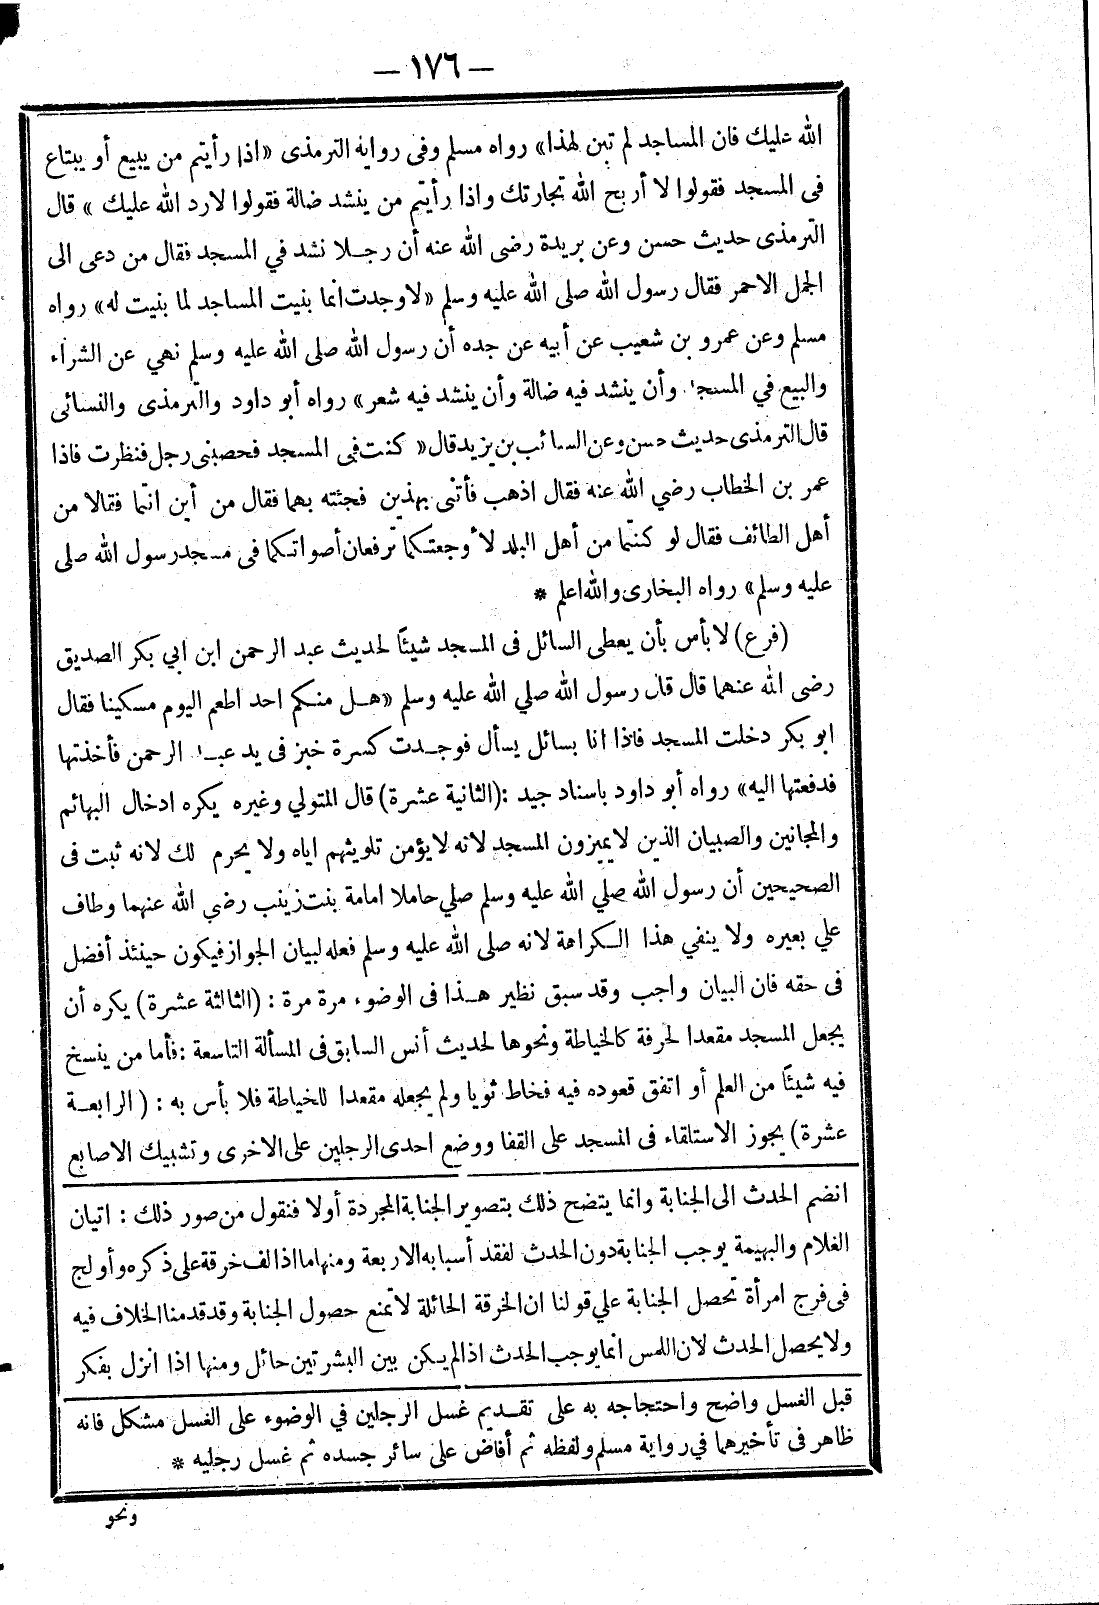 — ١٧٦ —
الله عليك فان المساجد لم تبن لهذا» رواه مسلم وفى رواية الترمذى «اذا رأيتم من يبيع أو يبتاع
فى المسجد فقولوا لا أربح الله تجارتك واذا رأيتم من ينشد ضالة فقولوا لارد الله عليك » قال
الترمذى حديث حسن وعن بريدة رضى الله عنه أن رجـلا نشد في المسجد فقال من دعى الى
الجمل الاحمر فقال رسول الله صلى الله عليه وسلم «لاوجدت انما بنيت المساجد لما بنيت له» رواه
مسلم وعن عمرو بن شعيب عن أبيه عن جده أن رسول الله صلى الله عليه وسلم نهي عن الشراء
والبيع في المسجد وأن ينشد فيه ضالة وأن ينشد فيه شعر» رواه أبو داود والترمذى والنسائى
قال الترمذى حديث حسن وعن السائب بن يزيد قال « كنت فى المسجد فحصبنى رجل فنظرت فاذا
عمر بن الخطاب رضي الله عنه فقال اذهب فأتنى بهذين فجئته بهما فقال من أين انتما فقالا من
أهل الطائف فقال لو كنتما من أهل البلد لأوجعتكما ترفعان أصواتكما فى مسجد رسول الله صلى
عليه وسلم» رواه البخارى والله اعلم *
(فرع) لا بأس بأن يعطى السائل فى المسجد شيئا لحديث عبد الرحمن ابن ابي بكر الصديق
رضى الله عنهما قال قال رسول الله صلي الله عليه وسلم «هـل منـكم احد اطعم اليوم مسكينا فقال
ابو بكر دخلت المسجد فاذا انا بسائل يسأل فوجـدت كسرة خبز فى يد عبد الرحمن فأخذتها
فدفعتها اليه» رواه أبو داود باسناد جيد :(الثانية عشرة) قال المتولي وغيره يكره ادخال البهائم
والمجانين والصبيان الذين لايميزون المسجد لانه لايؤمن تلويثهم اياه ولا يحرم لك لانه ثبت فى
الصحيحين أن رسول الله صلي الله عليه وسلم صلي حاملا امامة بنت زينب رضي الله عنهما وطاف
علي بعيره ولا ينفي هذا الـكراهة لانه صلى الله عليه وسلم فعله لبيان الجواز فيكون حينئذ أفضل
فى حقه فان البيان واجب وقد سبق نظير هـذا فى الوضوء مرة مرة : (الثالثة عشرة) يكره أن
يجعل المسجد مقعدا لحرفة كالخياطة ونحوها لحديث أنس السابق فى المسألة التاسعة :فأما من ينسخ
فيه شيئا من العلم أو اتفق قعوده فيه فخاط ثوبا ولم يجعله مقعدا للخياطة فلا بأس به : ( الرابعـة
عشرة) يجوز الاستلقاء فى المسجد على القفا ووضع احدى الرجلين على الاخرى وتشبيك الاصابع
انضم الحدث الى الجنابة وانما يتضح ذلك بتصوير الجنابة المجردة أولا فنقول من صور ذلك : اتيان
الغلام والبهيمة يوجب الجنابة دون الحدث لفقد أسبابه الاربعة ومنها ما اذا لف خرقة على ذكره وأولج
فى فرج امرأة تحصل الجنابة علي قولنا ان الخرقة الحائلة لا تمنع حصول الجنابة وقد قدمنا الخلاف فيه
ولا يحصل الحدث لان اللمس انما يوجب الحدث اذا لم يكن بين البشرتين حائل ومنها اذا انزل بفكر
قبل الغسل واضح واحتجاجه به على تقـديم غسل الرجلين في الوضوء على الغسل مشكل فانه
ظاهر فى تأخيرهما في رواية مسلم ولفظه ثم أفاض على سائر جسده ثم غسل رجليه *
ونحو